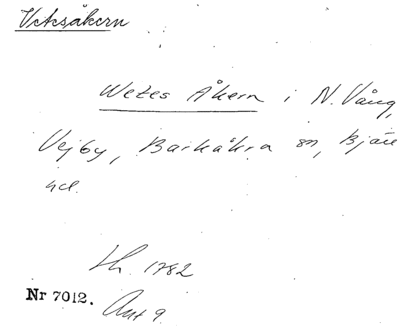 Vetesåkern
Wetes Åkern i N. Vång,
Vejby, Barkåkra sn, Bjäre
hd.
Lh. 1782
Nr 7012. Akt 9.